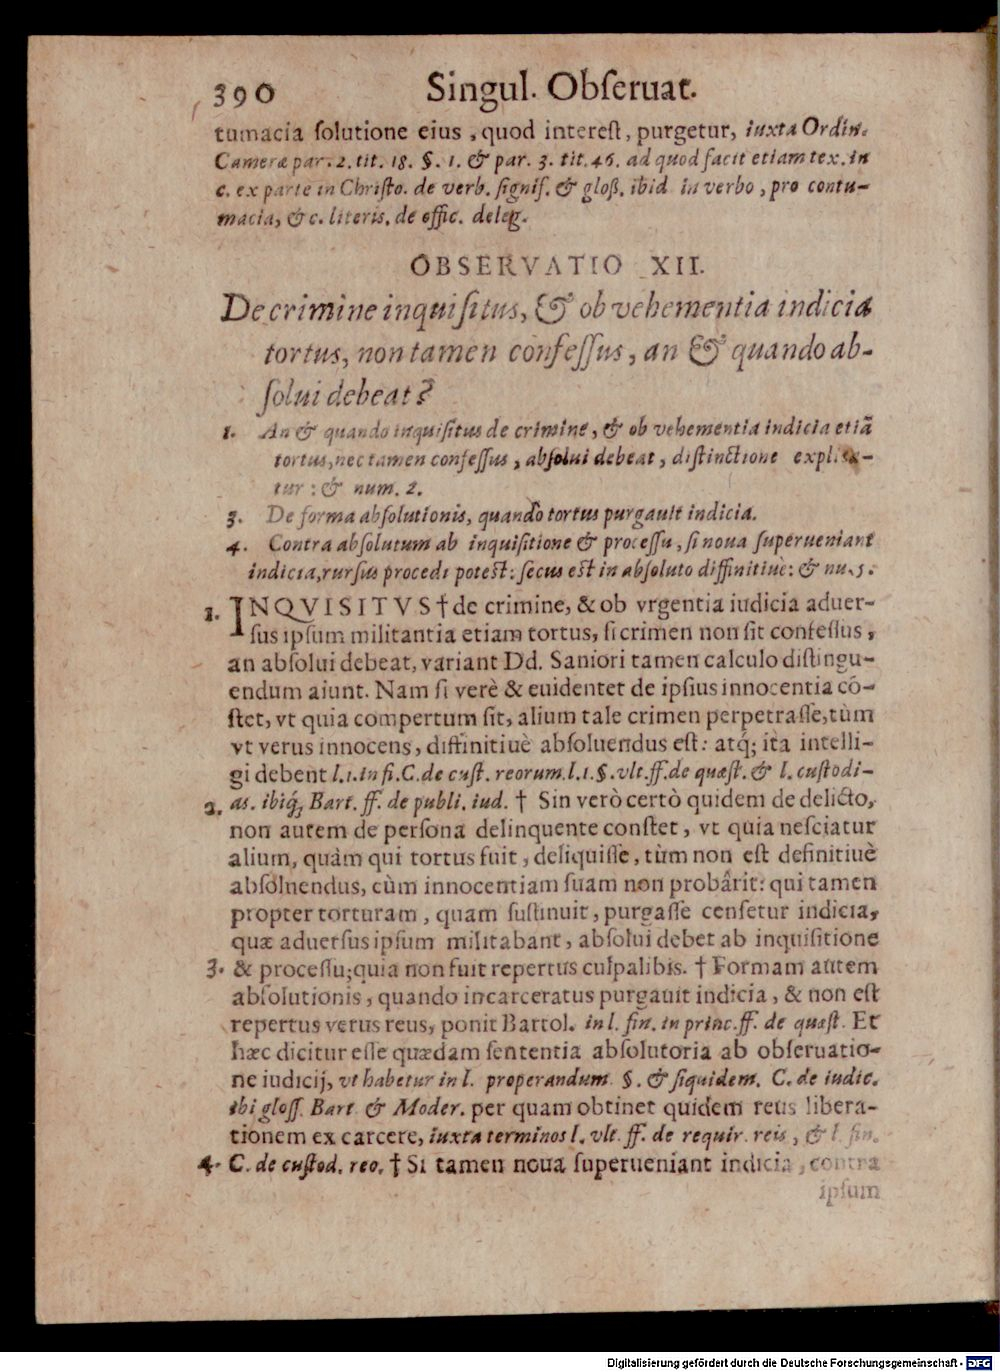 390 Singul. Obſeruat.
tumacia ſolutione eius, quod intereſt, purgetur, iuxta Ordin.
Cameræ par. 2. tit. 18. §. 1. & par. 3. tit. 46. ad quod facit etiam tex. in
c. ex parte in Chriſto. de verb. ſignif. & gloß. ibid in verbo, pro contu-
macia, & c. literis. de offic. deleg.
OBSERVATIO XII.
De crimine inquiſitus, & ob vehementia indicia
tortus, non tamen confeſſus, an & quando ab-
ſolui debeat?
1. An & quando inquiſitus de crimine, & ob vehementia indicia etiã
tortus, nec tamen confeſſus, abſolui debeat, diſtinctione explica-
tur: & num. 2.
3. De forma abſolutionis, quando tortus purgauit indicia.
4. Contra abſolutum ab inquiſitione & proceſſu, ſi noua ſuperueniant
indicia, rurſus procedi poteſt: ſecus eſt in abſoluto diffinitiuè: & nu. 5.
1. INQVISITVS † de crimine, & ob vrgentia iudicia aduer-
ſus ipſum militantia etiam tortus, ſi crimen non ſit confeſſus,
an abſolui debeat, variant Dd. Saniori tamen calculo diſtingu-
endum aiunt. Nam ſi verè & euidentet de ipſius innocentia cõ-
ſtet, vt quia compertum ſit, alium tale crimen perpetraſſe, tùm
vt verus innocens, diffinitiuè abſoluendus eſt: atq́; ita intelli-
gi debent l. 1. in fi. C. de cuſt. reorum. l. 1. §. vlt. ff. de quæſt. & l. cuſtodi-
2. as. ibiq́; Bart. ff. de publi. iud. † Sin verò certò quidem de delicto,
non autem de perſona delinquente conſtet, vt quia neſciatur
alium, quàm qui tortus fuit, deliquiſſe, tùm non eſt definitiuè
abſoluendus, cùm innocentiam ſuam non probârit: qui tamen
propter torturam, quam ſuſtinuit, purgaſſe cenſetur indicia,
quæ aduerſus ipſum militabant, abſolui debet ab inquiſitione
3. & proceſſu; quia non fuit repertus culpalibis. † Formam autem
abſolutionis, quando incarceratus purgauit indicia, & non eſt
repertus verus reus, ponit Bartol. in l. fin. in princ. ff. de quæſt. Et
hæc dicitur eſſe quædam ſententia abſolutoria ab obſeruatio-
ne iudicij, vt habetur in l. properandum §. & ſiquidem. C. de iudic.
ibi gloſſ. Bart & Moder. per quam obtinet quidem reus libera-
tionem ex carcere, iuxta terminos l. vlt. ff. de requir. reis, & l. fin.
4. C. de cuſtod. reo. † Si tamen noua ſuperueniant indicia, contra
ipſum
Digitalisierung gefördert durch die Deutsche Forschungsgemeinschaft - DFG